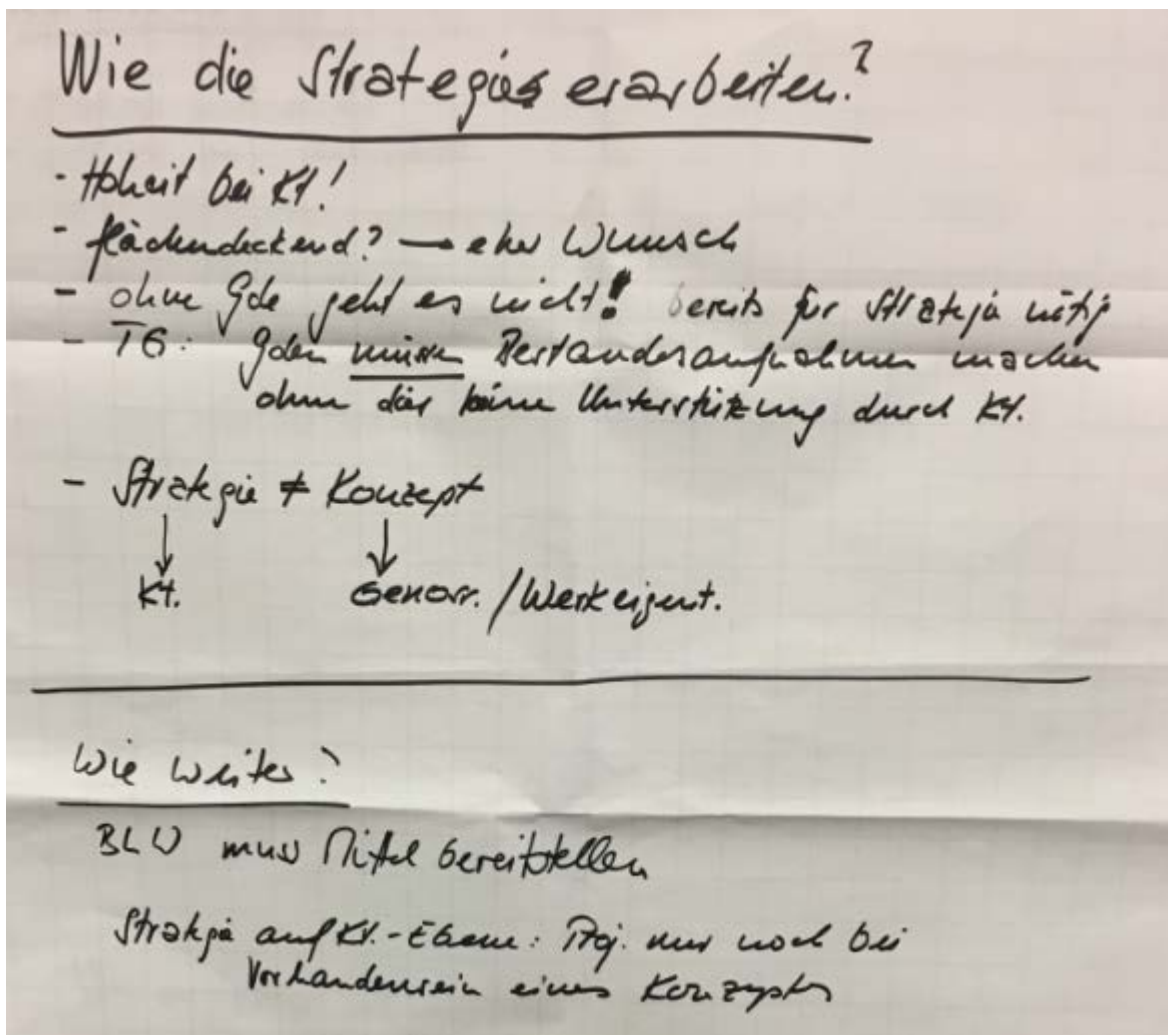 Wie die Strategie erarbeiten?
- Hoheit bei Kt!
- flächendeckend? → eher Wunsch
- ohne Gde geht es nicht! bereits für Strategie nötig
- TG: Gden müssen Bestandesaufnahmen machen
ohne dies keine Unterstützung durch Kt.
- Strategie ≠ Konzept
↓ ↓
Kt. Genoss./Werkeigent.
Wie weiter?
BLW muss Mittel bereitstellen
Strategie auf Kt.-Ebene: Proj. nur noch bei
Vorhandensein eines Konzeptes